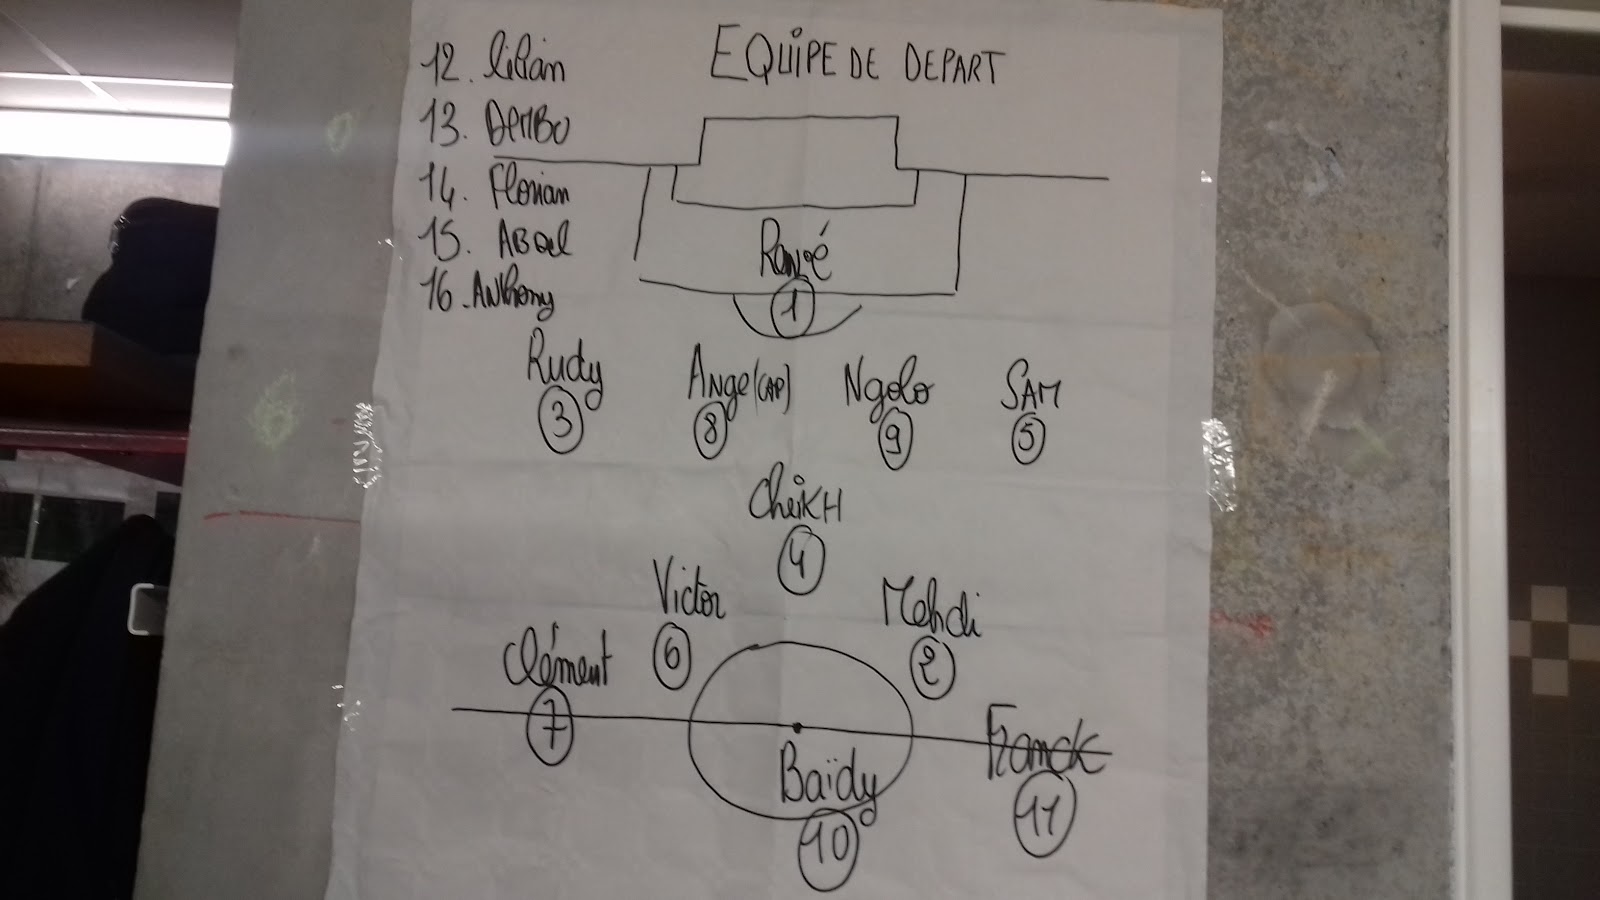 EQUIPE DE DEPART
12. lilian
13. DEMBO
14. Florian
15. ABdel
16. ANthony
1
Rudy
3
ANge (CAP)
8
Ngolo
9
SAM
5
CheiKH
4
Victor
6
Mehdi
2
Clément
7
Baïdy
10
Franck
11